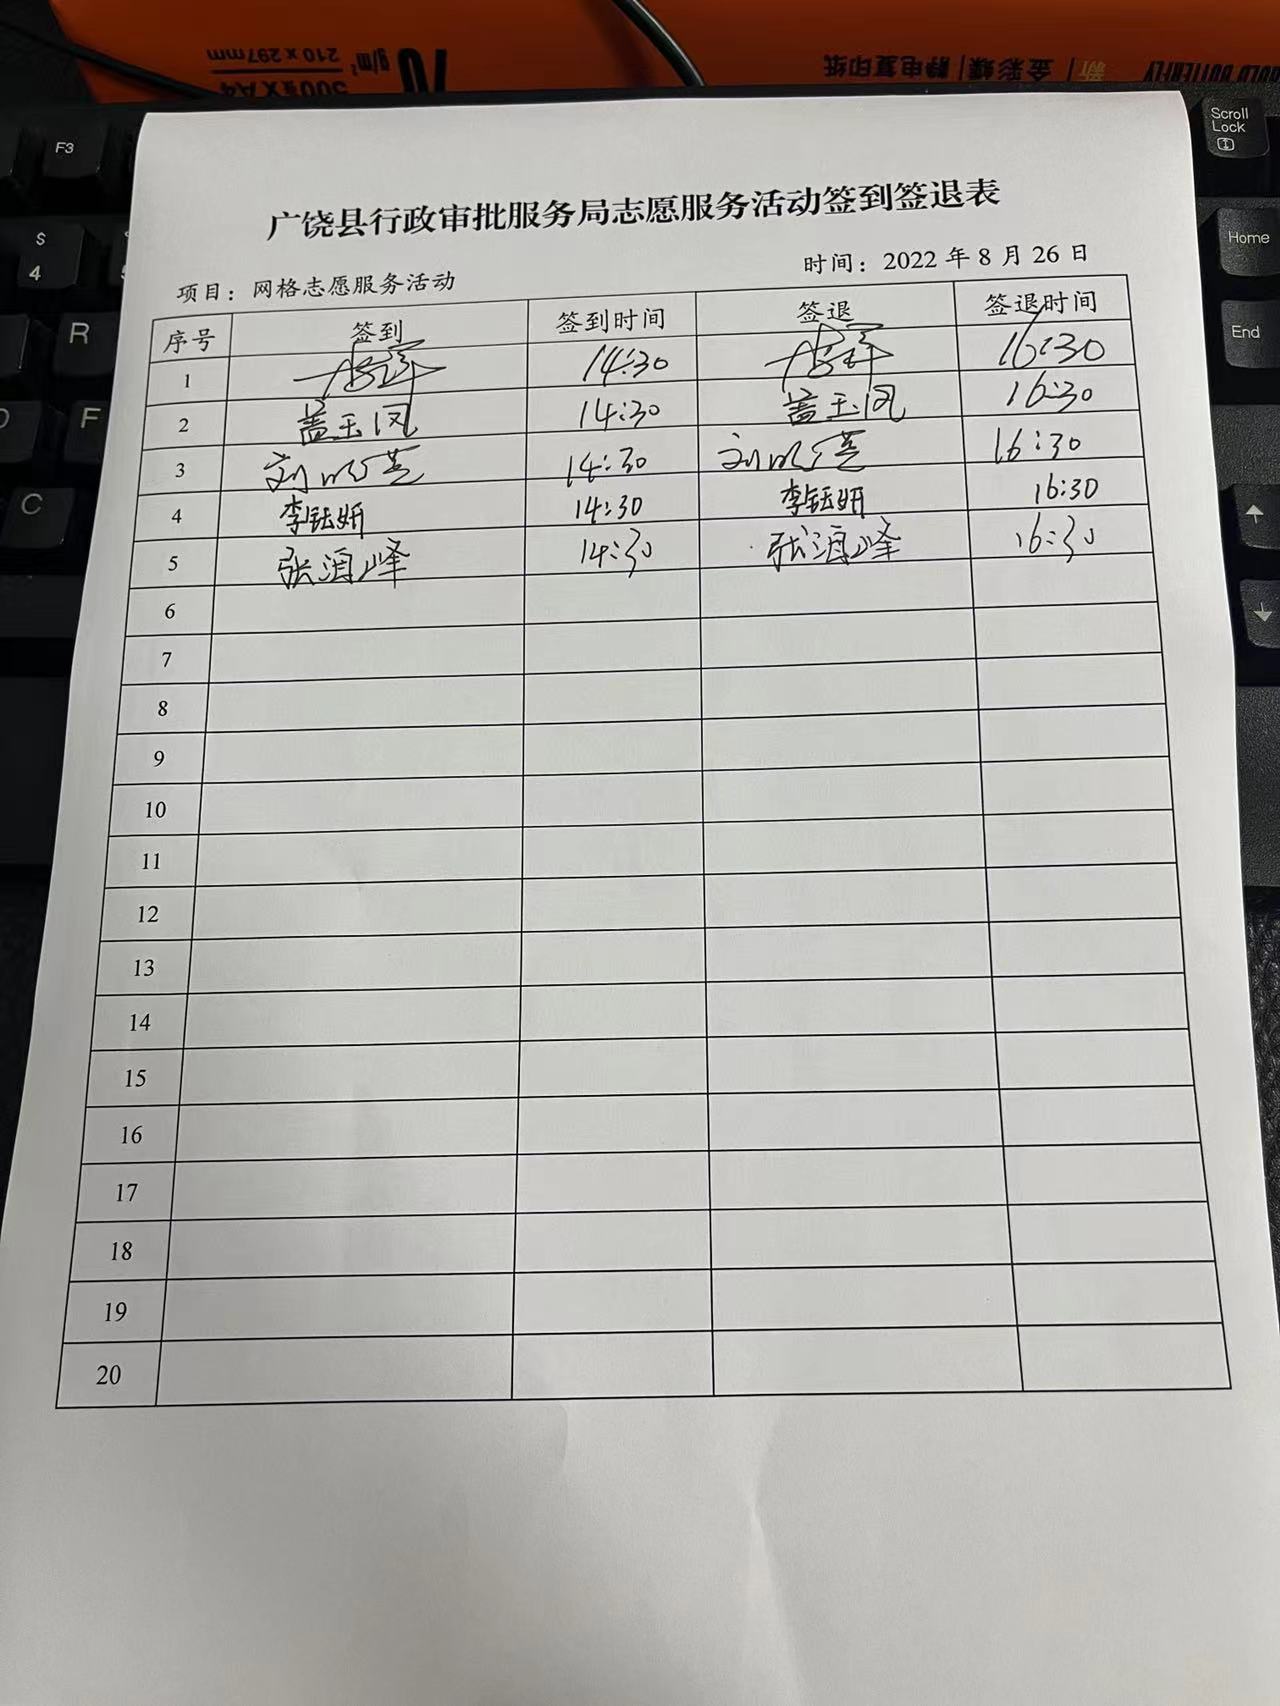 70 g/m²
210 x 297mm
500张 X A4
新 | 金彩蝶 | 静电复印纸
GOLD BUTTERFLY
Scroll Lock
F3
Home
$ 4
End
R
F
C
广饶县行政审批服务局志愿服务活动签到签退表
项目：网格志愿服务活动 时间：2022 年 8 月 26 日
序号 签到 签到时间 签退 签退时间
1 14:30 16:30
2 盖玉凤 14:30 盖玉凤 16:30
3 刘 14:30 刘 16:30
4 李钰妍 14:30 李钰妍 16:30
5 张 峰 14:30 张 峰 16:30
6
7
8
9
10
11
12
13
14
15
16
17
18
19
20